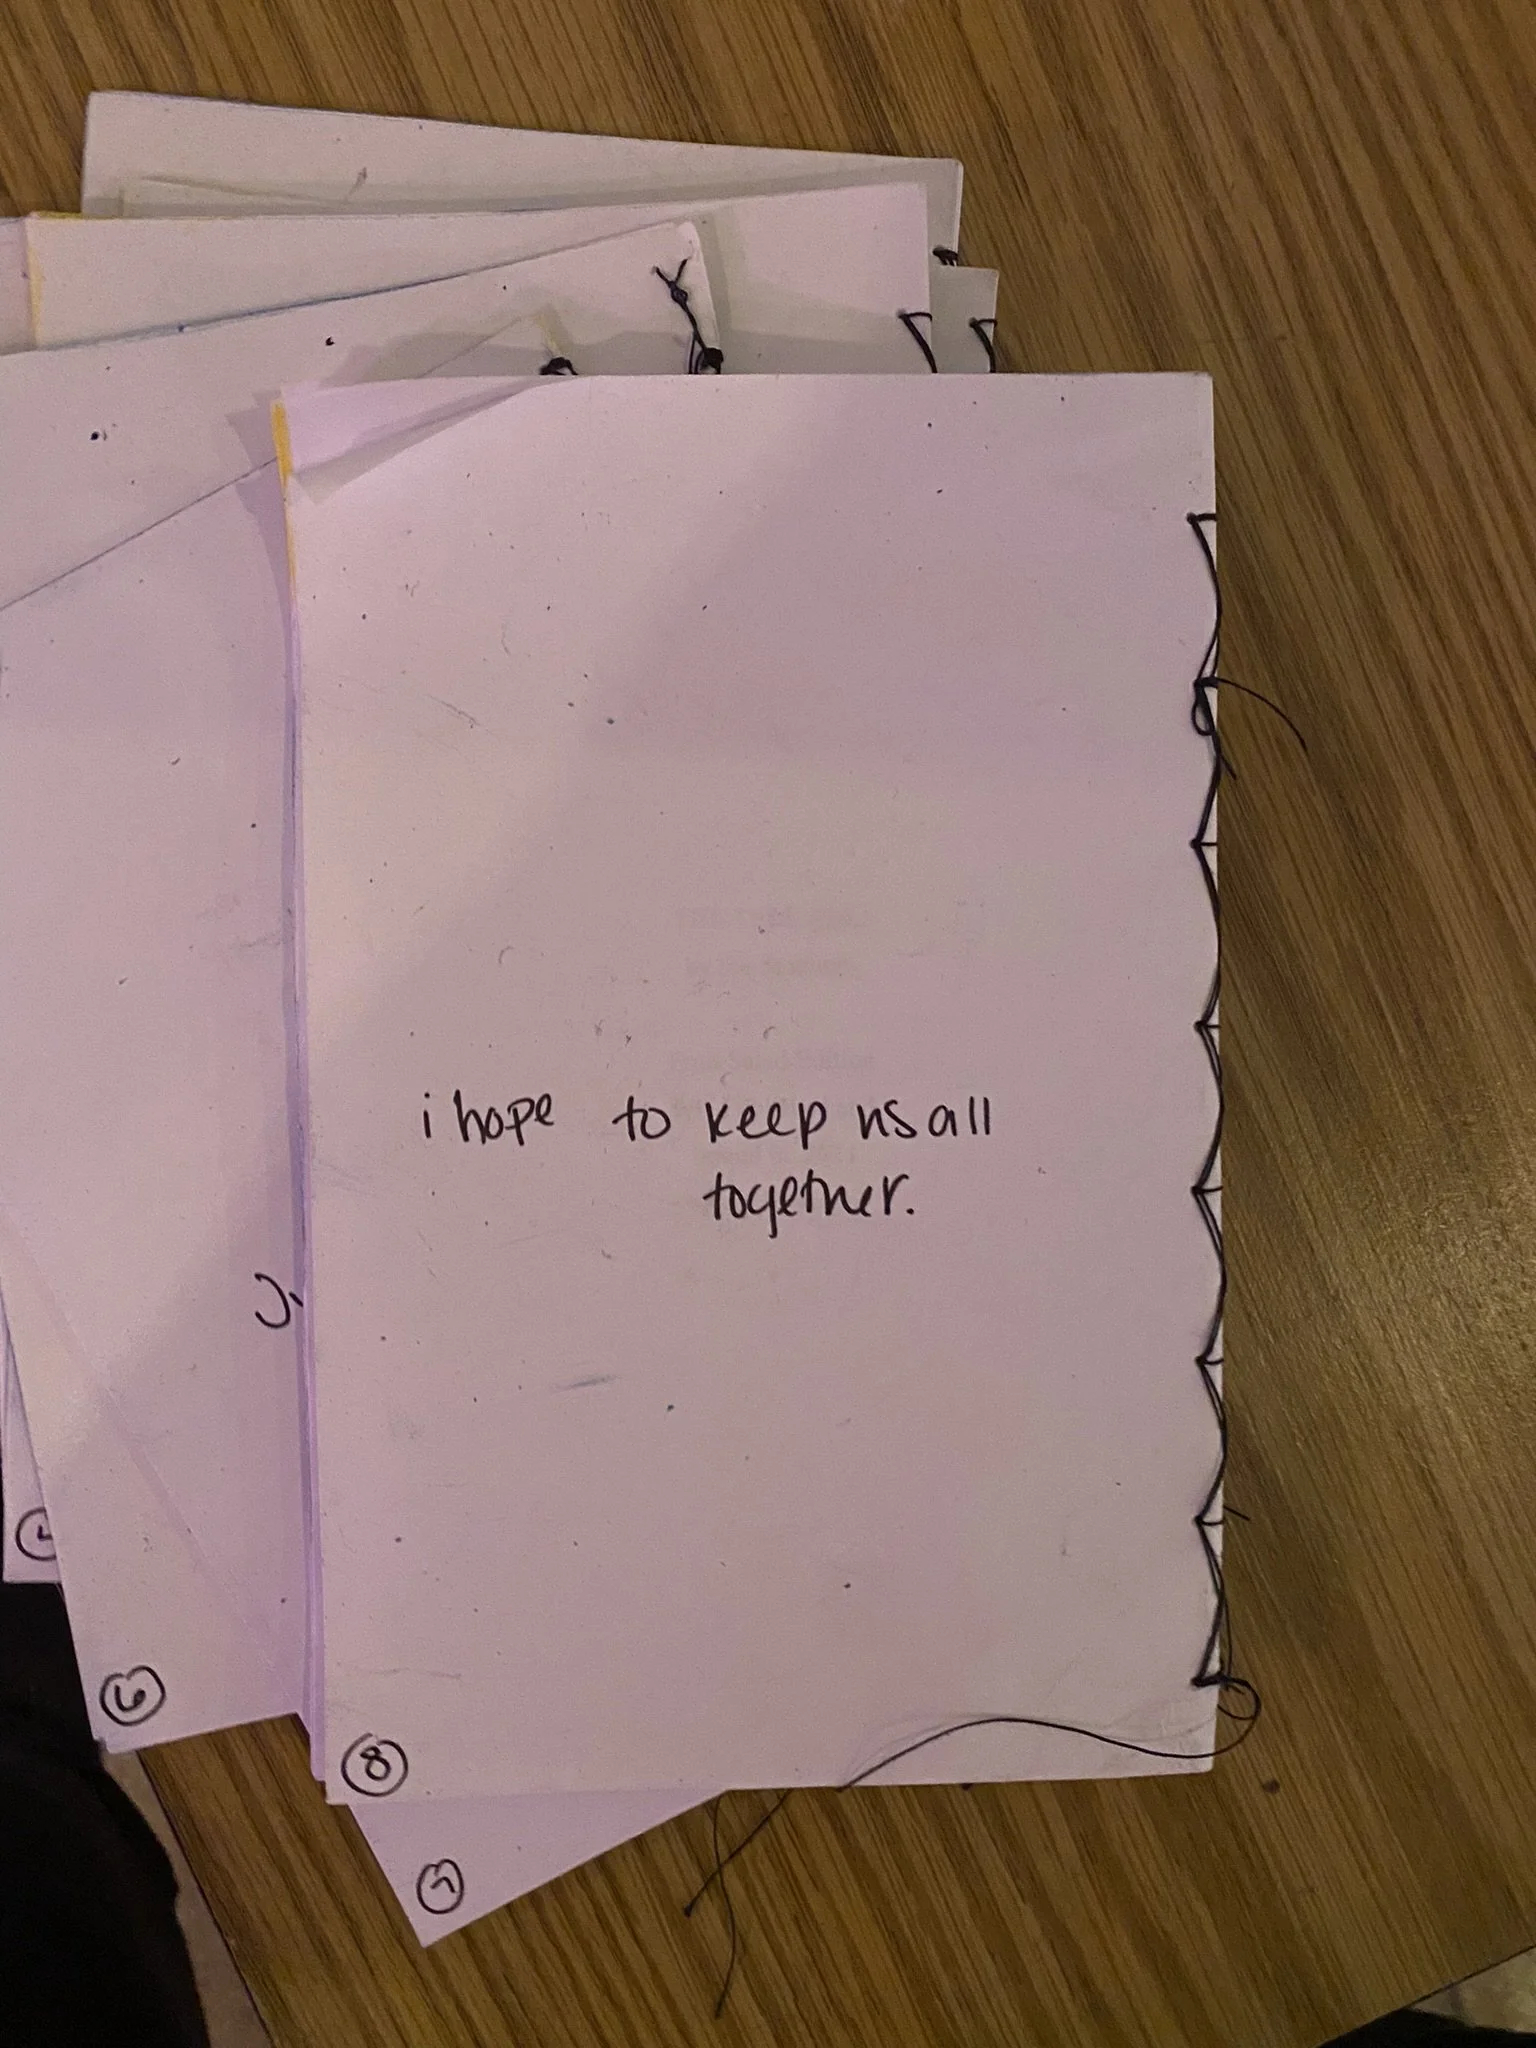 i hope to keep us all
together.
6
8
7